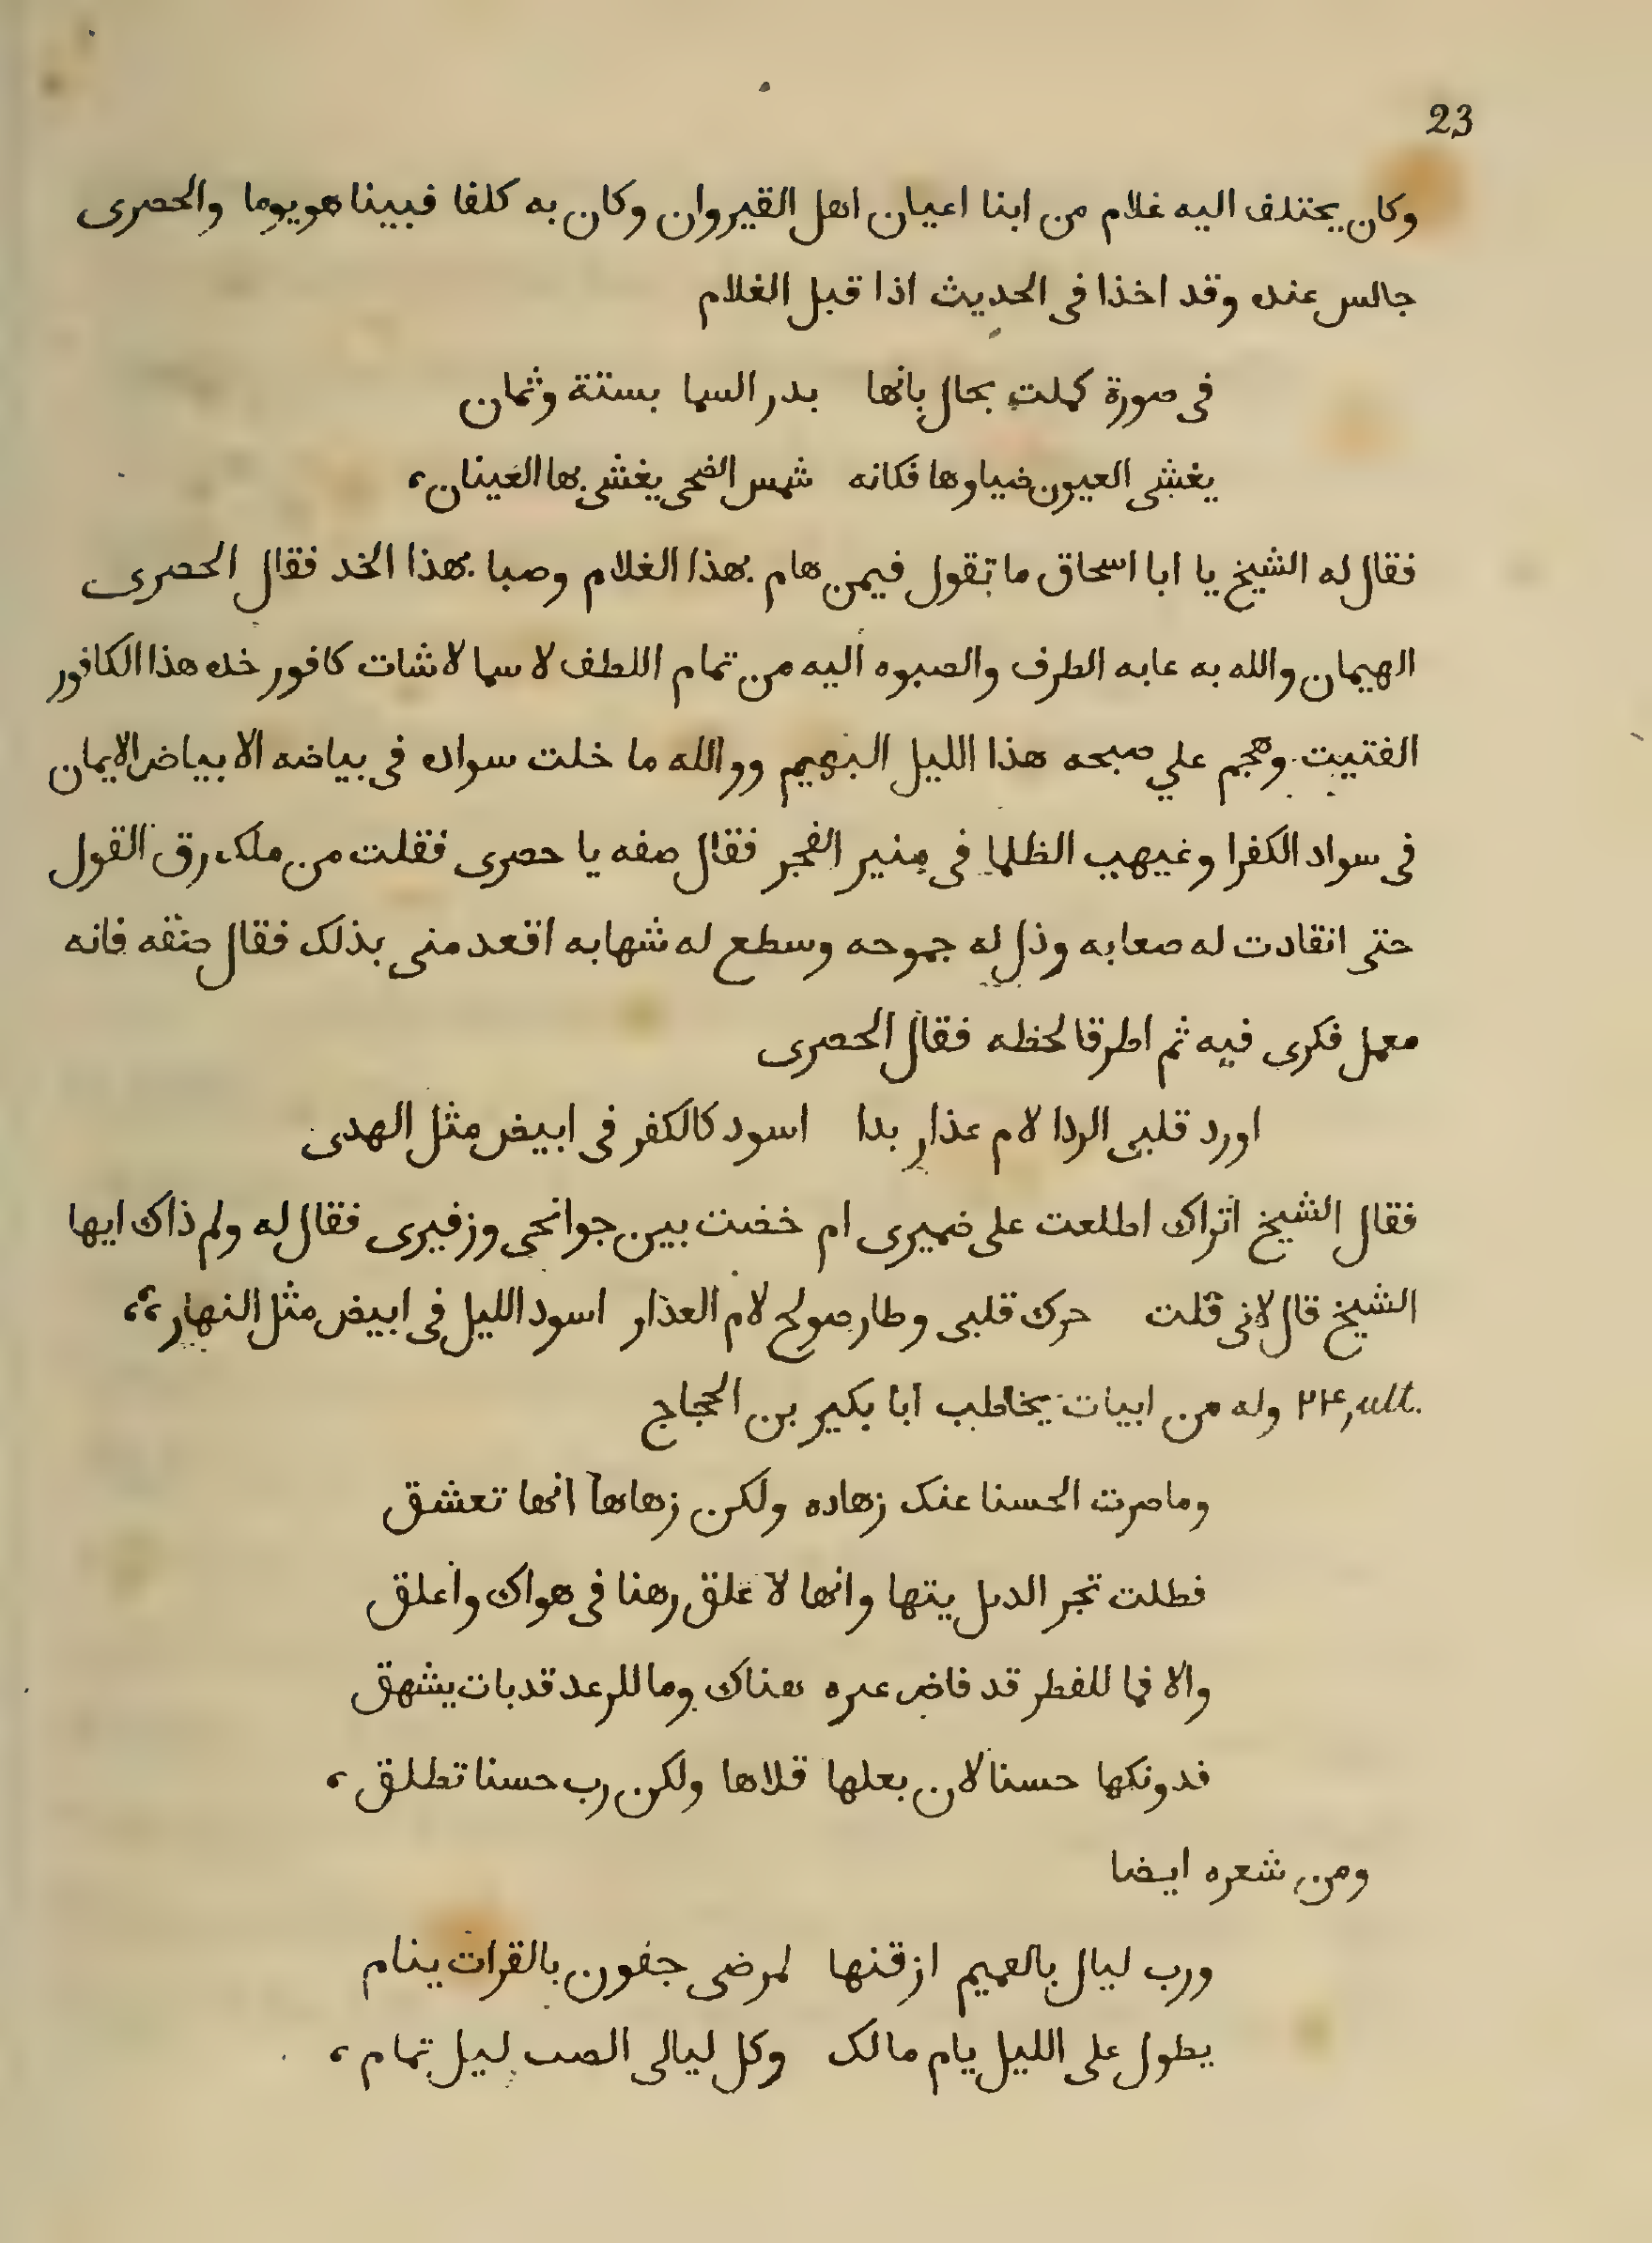 23
وكان يختلف اليه غلام من ابنا اعيان اهل القيروان وكان به كلفا فبينا هو يوما والحصرى
جالس عنده وقد اخذا فى الحديث اذا قبل الغلام
فى صورة كملت بحال بانها بدر السما بستة وثمان
يغشى العيون ضياوها فكانه شمس الضحى يغشى بها العينان،
فقال له الشيخ يا ابا اسحاق ما تقول فيمن هام بهذا الغلام وصبا بهذا الخد فقال الحصرى
الهيمان والله به عابه الطرف والصبوه اليه من تمام اللطف لا سما لا شات كافور خده هذا الكافور
الفتيت وهجم علي صبحه هذا الليل البهيم ووالله ما خلت سواده فى بياضه الا بياض الايمان
فى سواد الكفرا وغيهب الظلما فى منير الفجر فقال صفه يا حصرى فقلت من ملك رق القول
حتى انقادت له صعابه وذل له جموحه وسطع له شهابه اقعد منى بذلك فقال صنفه فانه
معمل فكرى فيه ثم اطرقا لحظه فقال الحصرى
اورد قلبى الردا لام عذار بدا اسود كالكفر فى ابيض مثل الهدى
فقال الشيخ اتراك اطلعت على ضميرى ام خضت بين جوانحى وزفيرى فقال له ولم ذاك ايها
الشيخ قال لانى قلت حرك قلبى وطار صولج لام العذار اسود الليل فى ابيض مثل النهار،،
۲۴, ult. وله من ابيات يخاطب ابا بكير بن الحجاج
وما صرت الحسنا عنك زهاده ولكن زهاها انها تعشق
فطلت تجر الدىل يتها وانها لا غلق رهنا فى هواك واعلق
والا فما للفطر قد فاض عىره هناك وما للرعد قد بات يشهق
فدونكها حسنا لان بعلها قلاها ولكن رب حسنا تطلق،
ومن شعره ايضا
ورب ليال بالعميم ازقنها لمرضى جفون بالقرات ينام
يطول على الليل يام مالك وكل ليالى الصب ليل تمام،